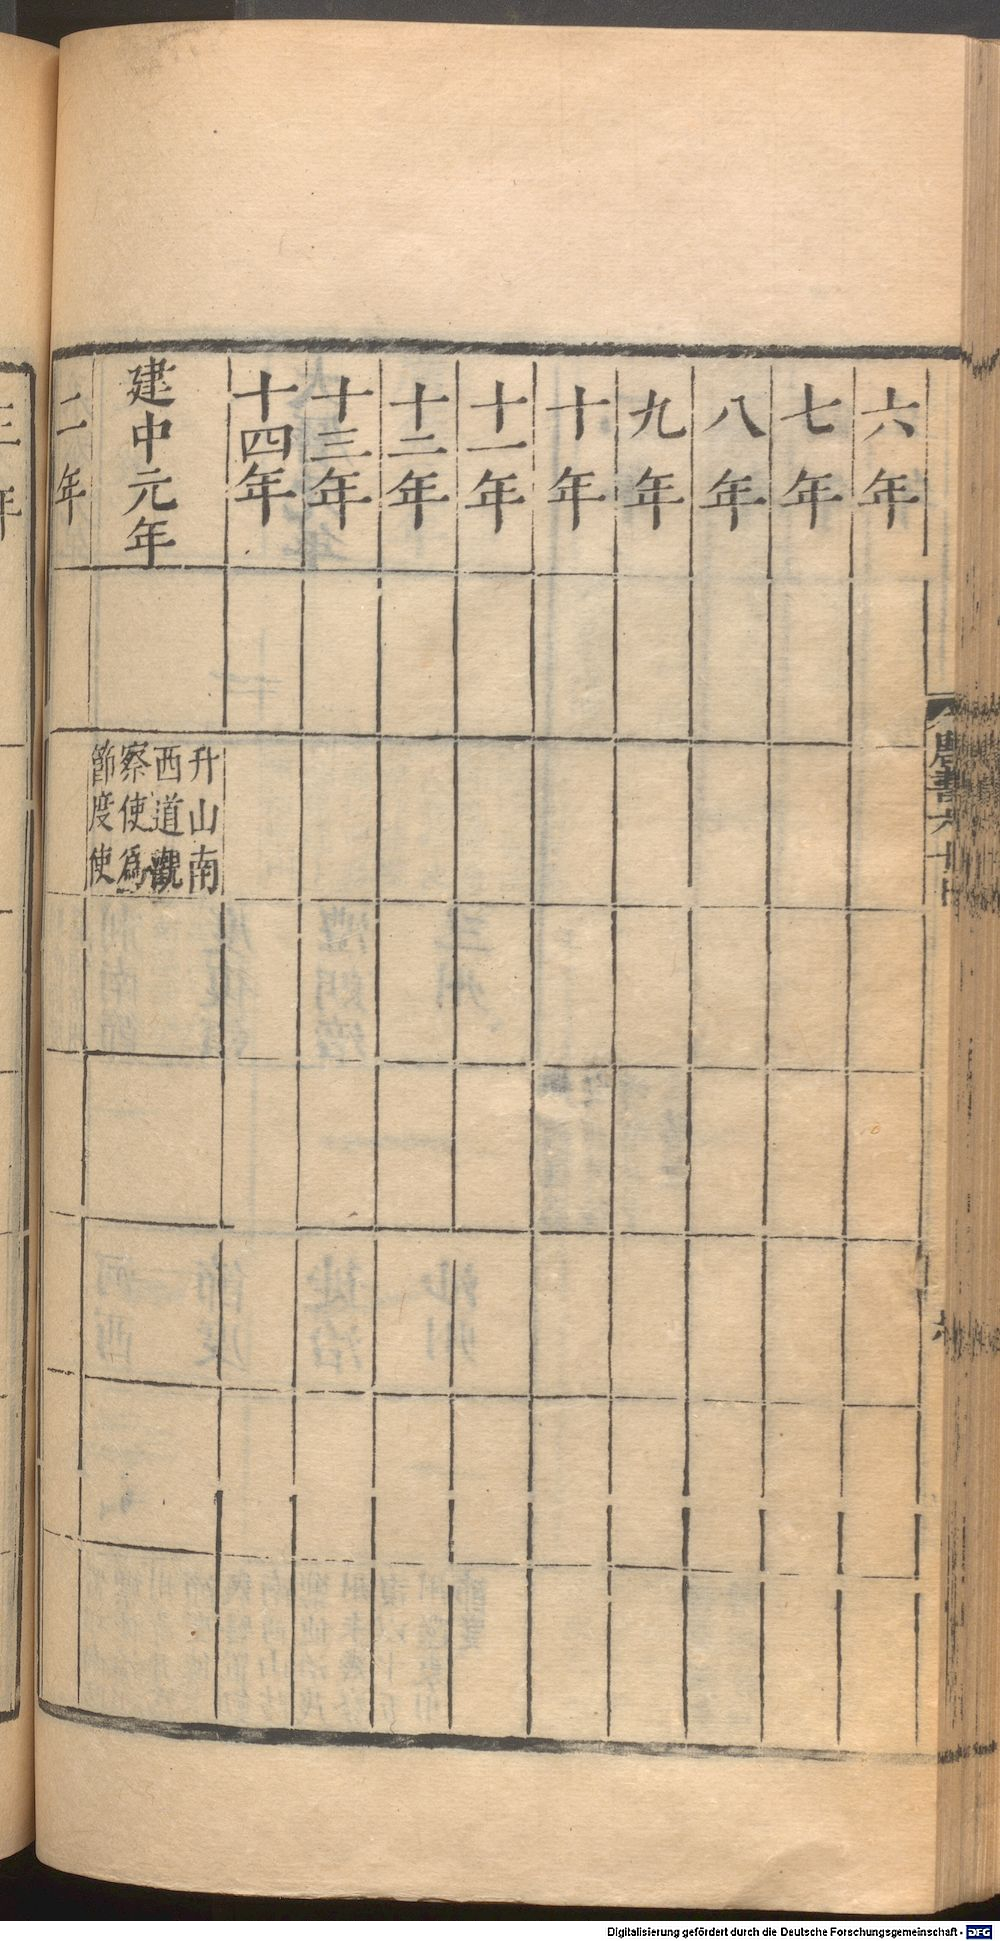 六年
七年
八年
九年
十年
十一年
十二年
十三年
十四年
建中元年
升山南
西道觀
察使爲
節度使
二年
三年
唐書六十
六
Digitalisierung gefördert durch die Deutsche Forschungsgemeinschaft - DFG